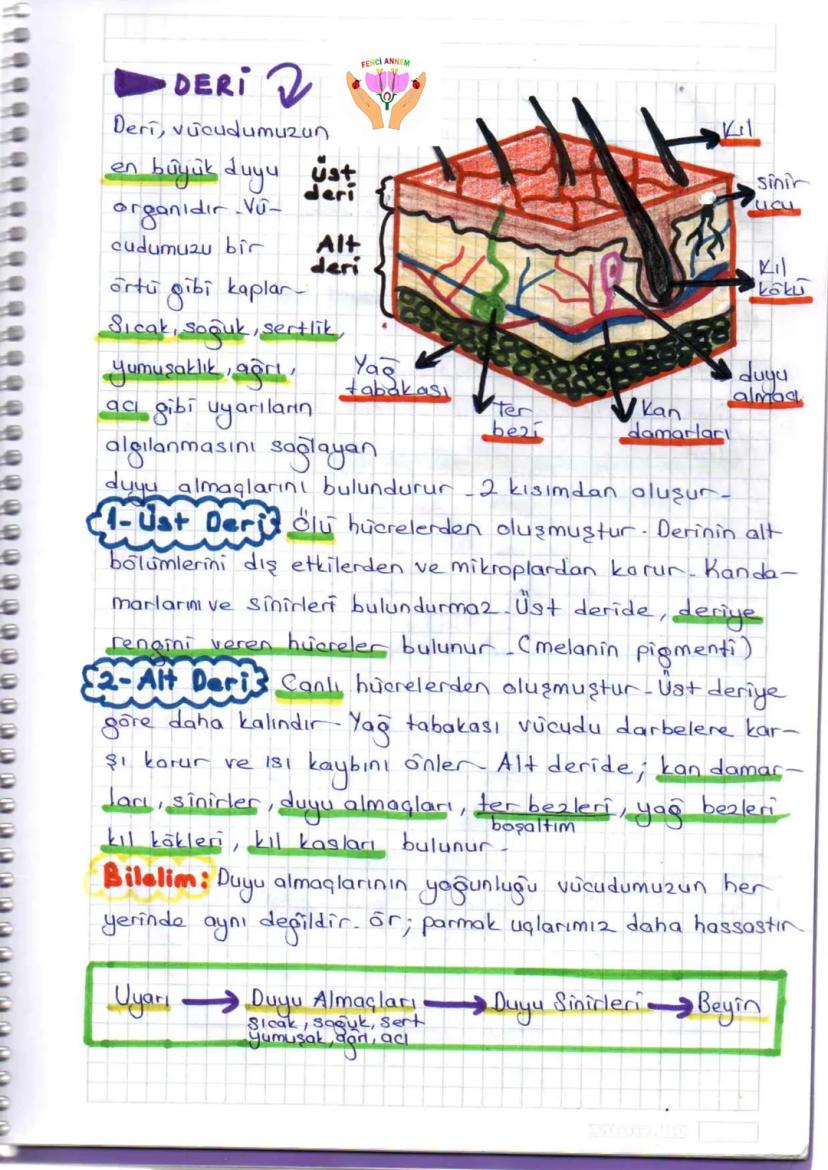 FENCİ ANNEM
DERİ
Deri, vücudumuzun
en büyük duyu
organıdır. Vü-
cudumuzu bir
örtü gibi kaplar.
Sıcak, soğuk, sertlik,
yumuşaklık, ağrı,
acı gibi uyarıların
algılanmasını sağlayan
duyu almaçlarını bulundurur. 2 kısımdan oluşur.
Üst
deri
Alt
deri
Kıl
sinir
ucu
Kıl
kökü
duyu
almacı
Kan
damarları
ter
bezi
Yağ
tabakası
1-Üst Deri: Ölü hücrelerden oluşmuştur. Derinin alt
bölümlerini dış etkilerden ve mikroplardan korur. Kanda-
marlarını ve sinirleri bulundurmaz. Üst deride, deriye
rengini veren hücreler bulunur. (melanin pigmenti)
2-Alt Deri: Canlı hücrelerden oluşmuştur. Üst deriye
göre daha kalındır. Yağ tabakası vücudu darbelere kar-
şı korur ve ısı kaybını önler. Alt deride; kan damar-
ları, sinirler, duyu almaçları, ter bezleri, yağ bezleri
boşaltım
kıl kökleri, kıl kasları bulunur.
Bilelim: Duyu almaçlarının yoğunluğu vücudumuzun her
yerinde aynı değildir. ör; parmak uçlarımız daha hassastır
Uyarı → Duyu Almaçları → Duyu Sinirleri → Beyin
sıcak, soğuk, sert
yumuşak, ağrı, acı